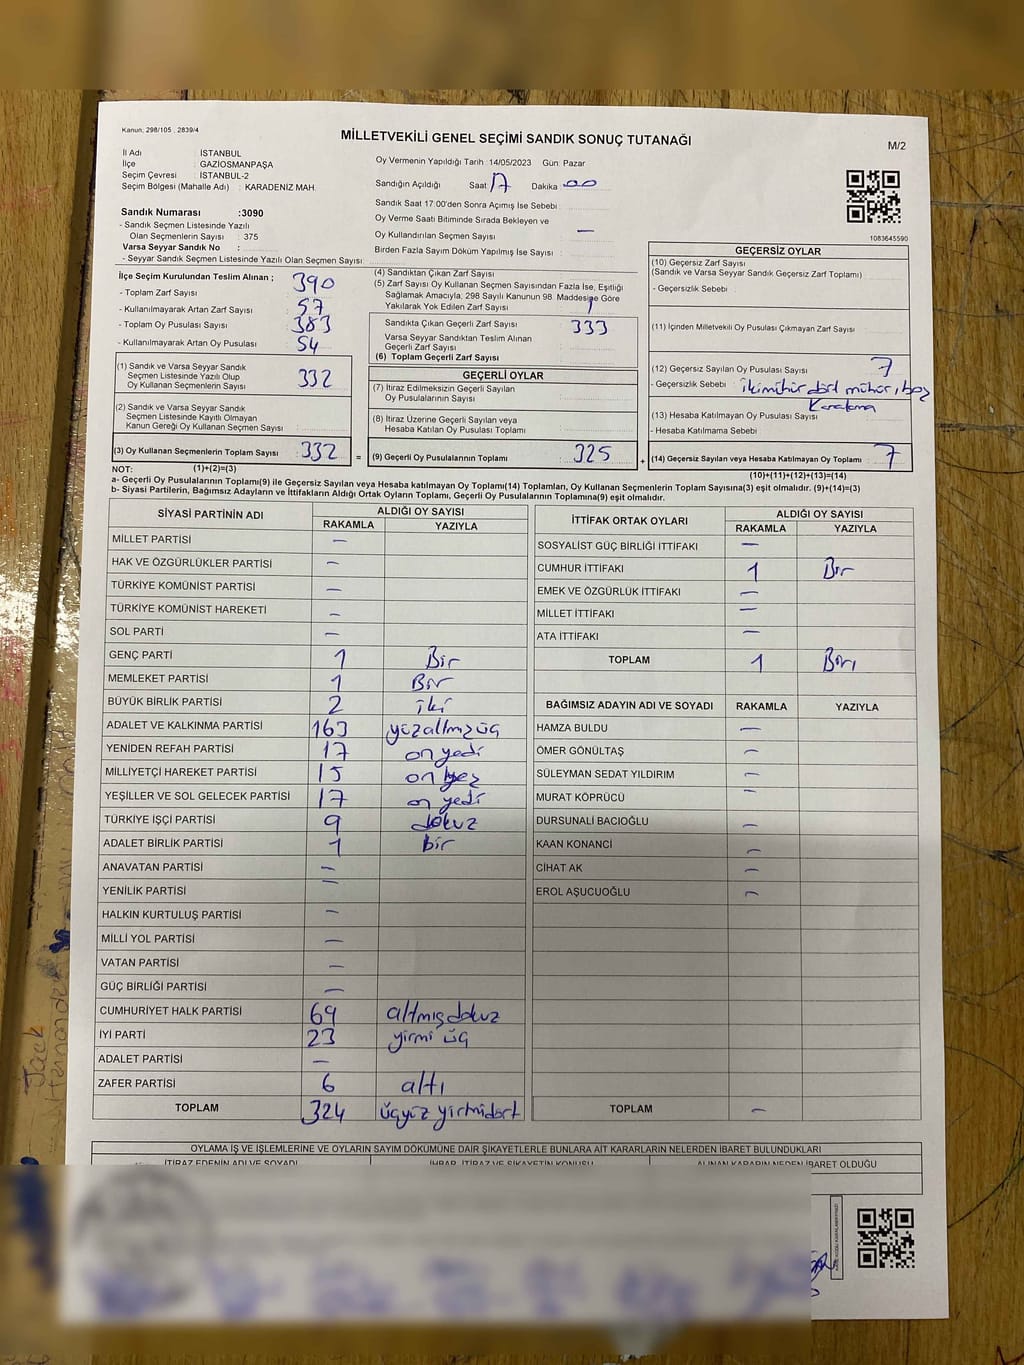 Kanun; 298/105 , 2839/4
MİLLETVEKİLİ GENEL SEÇİMİ SANDIK SONUÇ TUTANAĞI
M/2
İl Adı : İSTANBUL
İlçe : GAZİOSMANPAŞA
Seçim Çevresi : İSTANBUL-2
Seçim Bölgesi (Mahalle Adı) : KARADENİZ MAH.
Oy Vermenin Yapıldığı Tarih : 14/05/2023 Gün: Pazar
Sandığın Açıldığı Saat 17 Dakika 00
Sandık Saat 17:00'den Sonra Açımış İse Sebebi :
Oy Verme Saati Bitiminde Sırada Bekleyen ve
Oy Kullandırılan Seçmen Sayısı : —
Birden Fazla Sayım Döküm Yapılmış İse Sayısı :
1083645590
Sandık Numarası :3090
- Sandık Seçmen Listesinde Yazılı
Olan Seçmenlerin Sayısı : 375
Varsa Seyyar Sandık No :
- Seyyar Sandık Seçmen Listesinde Yazılı Olan Seçmen Sayısı:
İlçe Seçim Kurulundan Teslim Alınan ;
- Toplam Zarf Sayısı : 390
- Kullanılmayarak Artan Zarf Sayısı : 57
- Toplam Oy Pusulası Sayısı : 383
- Kullanılmayarak Artan Oy Pusulası : 54
(1) Sandık ve Varsa Seyyar Sandık
Seçmen Listesinde Yazılı Olup
Oy Kullanan Seçmenlerin Sayısı : 332
(2) Sandık ve Varsa Seyyar Sandık
Seçmen Listesinde Kayıtlı Olmayan
Kanun Gereği Oy Kullanan Seçmen Sayısı :
(3) Oy Kullanan Seçmenlerin Toplam Sayısı : 332 =
(4) Sandıktan Çıkan Zarf Sayısı
(5) Zarf Sayısı Oy Kullanan Seçmen Sayısından Fazla İse, Eşitliği
Sağlamak Amacıyla; 298 Sayılı Kanunun 98. Maddesine Göre
Yakılarak Yok Edilen Zarf Sayısı : 1
Sandıkta Çıkan Geçerli Zarf Sayısı : 333
Varsa Seyyar Sandıktan Teslim Alınan
Geçerli Zarf Sayısı :
(6) Toplam Geçerli Zarf Sayısı :
GEÇERLİ OYLAR
(7) İtiraz Edilmeksizin Geçerli Sayılan
Oy Pusulalarının Sayısı :
(8) İtiraz Üzerine Geçerli Sayılan veya
Hesaba Katılan Oy Pusulası Toplamı :
(9) Geçerli Oy Pusulalarının Toplamı : 325 +
GEÇERSİZ OYLAR
(10) Geçersiz Zarf Sayısı
(Sandık ve Varsa Seyyar Sandık Geçersiz Zarf Toplamı) :
- Geçersizlik Sebebi :
(11) İçinden Milletvekili Oy Pusulası Çıkmayan Zarf Sayısı :
(12) Geçersiz Sayılan Oy Pusulası Sayısı : 7
- Geçersizlik Sebebi : iki mühür dört mühür, boş
Karalama
(13) Hesaba Katılmayan Oy Pusulası Sayısı :
- Hesaba Katılmama Sebebi :
(14) Geçersiz Sayılan veya Hesaba Katılmayan Oy Toplamı : 7
NOT: (1)+(2)=(3)
(10)+(11)+(12)+(13)=(14)
a- Geçerli Oy Pusulalarının Toplamı(9) ile Geçersiz Sayılan veya Hesaba katılmayan Oy Toplamı(14) Toplamları, Oy Kullanan Seçmenlerin Toplam Sayısına(3) eşit olmalıdır. (9)+(14)=(3)
b- Siyasi Partilerin, Bağımsız Adayların ve İttifakların Aldığı Ortak Oyların Toplamı, Geçerli Oy Pusulalarının Toplamına(9) eşit olmalıdır.
SİYASİ PARTİNİN ADI ALDIĞI OY SAYISI
RAKAMLA YAZIYLA
MİLLET PARTİSİ —
HAK VE ÖZGÜRLÜKLER PARTİSİ —
TÜRKİYE KOMÜNİST PARTİSİ —
TÜRKİYE KOMÜNİST HAREKETİ —
SOL PARTİ —
GENÇ PARTİ 1 Bir
MEMLEKET PARTİSİ 1 Bir
BÜYÜK BİRLİK PARTİSİ 2 iki
ADALET VE KALKINMA PARTİSİ 163 yüzaltmışüç
YENİDEN REFAH PARTİSİ 17 on yedi
MİLLİYETÇİ HAREKET PARTİSİ 15 on beş
YEŞİLLER VE SOL GELECEK PARTİSİ 17 on yedi
TÜRKİYE İŞÇİ PARTİSİ 9 dokuz
ADALET BİRLİK PARTİSİ 1 bir
ANAVATAN PARTİSİ —
YENİLİK PARTİSİ —
HALKIN KURTULUŞ PARTİSİ —
MİLLİ YOL PARTİSİ —
VATAN PARTİSİ —
GÜÇ BİRLİĞİ PARTİSİ —
CUMHURİYET HALK PARTİSİ 69 altmış dokuz
İYİ PARTİ 23 yirmi üç
ADALET PARTİSİ —
ZAFER PARTİSİ 6 altı
TOPLAM 324 üçyüz yirmidört
İTTİFAK ORTAK OYLARI ALDIĞI OY SAYISI
RAKAMLA YAZIYLA
SOSYALİST GÜÇ BİRLİĞİ İTTİFAKI —
CUMHUR İTTİFAKI 1 Bir
EMEK VE ÖZGÜRLÜK İTTİFAKI —
MİLLET İTTİFAKI —
ATA İTTİFAKI —
TOPLAM 1 Bir
BAĞIMSIZ ADAYIN ADI VE SOYADI RAKAMLA YAZIYLA
HAMZA BULDU —
ÖMER GÖNÜLTAŞ —
SÜLEYMAN SEDAT YILDIRIM —
MURAT KÖPRÜCÜ —
DURSUNALİ BACIOĞLU —
KAAN KONANCİ —
CİHAT AK —
EROL AŞUCUOĞLU —
TOPLAM —
OYLAMA İŞ VE İŞLEMLERİNE VE OYLARIN SAYIM DÖKÜMÜNE DAİR ŞİKAYETLERLE BUNLARA AİT KARARLARIN NELERDEN İBARET BULUNDUKLARI
İTİRAZ EDENİN ADI VE SOYADI İHBAR, İTİRAZ VE ŞİKAYETİN KONUSU ALINAN KARARIN NEDEN İBARET OLDUĞU
Jack